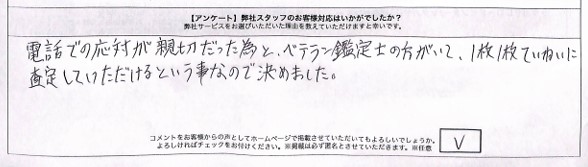 【アンケート】弊社スタッフのお客様対応はいかがでしたか？
弊社サービスをお選びいただいた理由を教えていただけますと幸いです。
電話での応対が親切だった為と、ベテラン鑑定士の方がいて、1枚1枚ていねいに
査定していただけるという事なので決めました。
コメントをお客様からの声としてホームページで掲載させていただいてもよろしいでしょうか。
よろしければチェックをお付けください。※掲載は必ず匿名とさせていただきます。※任意
V